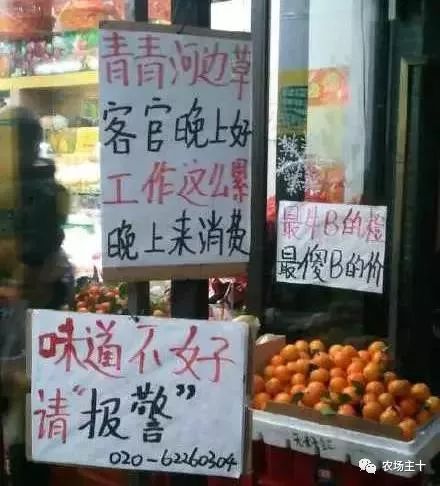 青青河边草
客官晚上好
工作这么累
晚上来消费
最牛B的橙
最傻B的价
味道不好
请“报警”
020-62260304
农场主十